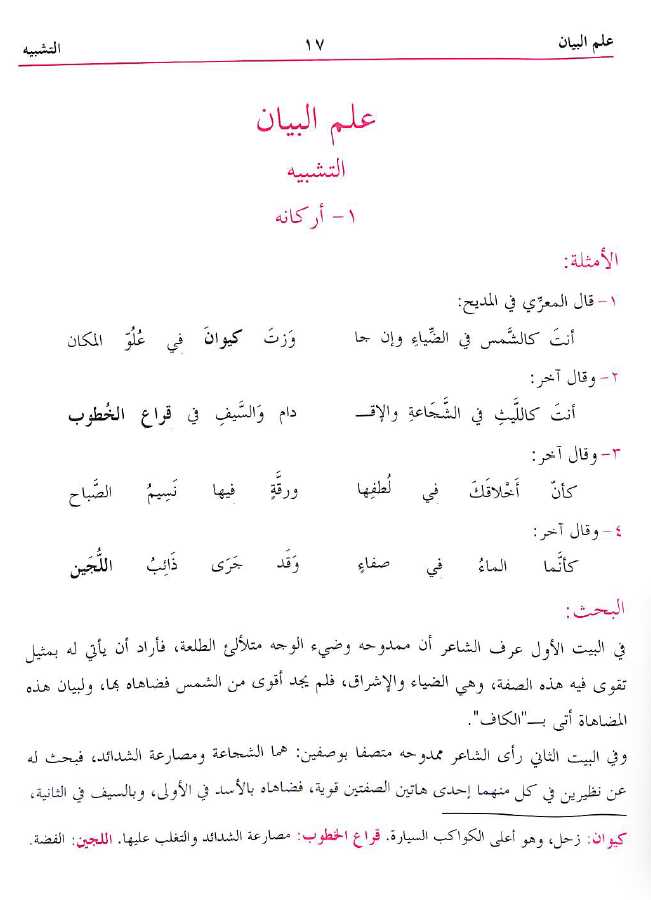 علم البيان ١٧ التشبيه
علم البيان
التشبيه
١- أركانه
الأمثلة:
١- قال المعرّي في المديح:
أنتَ كالشَّمس في الضِّياءِ وإن جا وَزتَ كيوانَ في عُلُوّ المكان
٢- وقال آخر:
أنتَ كاللَّيثِ في الشَّجَاعةِ والإقــ دام وَالسَّيفِ في قراع الخُطوب
٣- وقال آخر:
كأنّ أَخْلاقَكَ في لُطفِها ورقَّةٍ فيها نَسِيمُ الصَّباح
٤- وقال آخر:
كأنَّما الماءُ في صفاءٍ وَقَد جَرَى ذَائِبُ اللُّجَين
البحث:
في البيت الأول عرف الشاعر أن ممدوحه وضيء الوجه متلألئ الطلعة، فأراد أن يأتي له بمثيل
تقوى فيه هذه الصفة، وهي الضياء والإشراق، فلم يجد أقوى من الشمس فضاهاه بها، ولبيان هذه
المضاهاة أتى بــ"الكاف".
وفي البيت الثاني رأى الشاعر ممدوحه متصفا بوصفين: هما الشجاعة ومصارعة الشدائد، فبحث له
عن نظيرين في كل منهما إحدى هاتين الصفتين قوية، فضاهاه بالأسد في الأولى، وبالسيف في الثانية،
كيوان: زحل، وهو أعلى الكواكب السيارة. قراع الخطوب: مصارعة الشدائد والتغلب عليها. اللجين: الفضة.